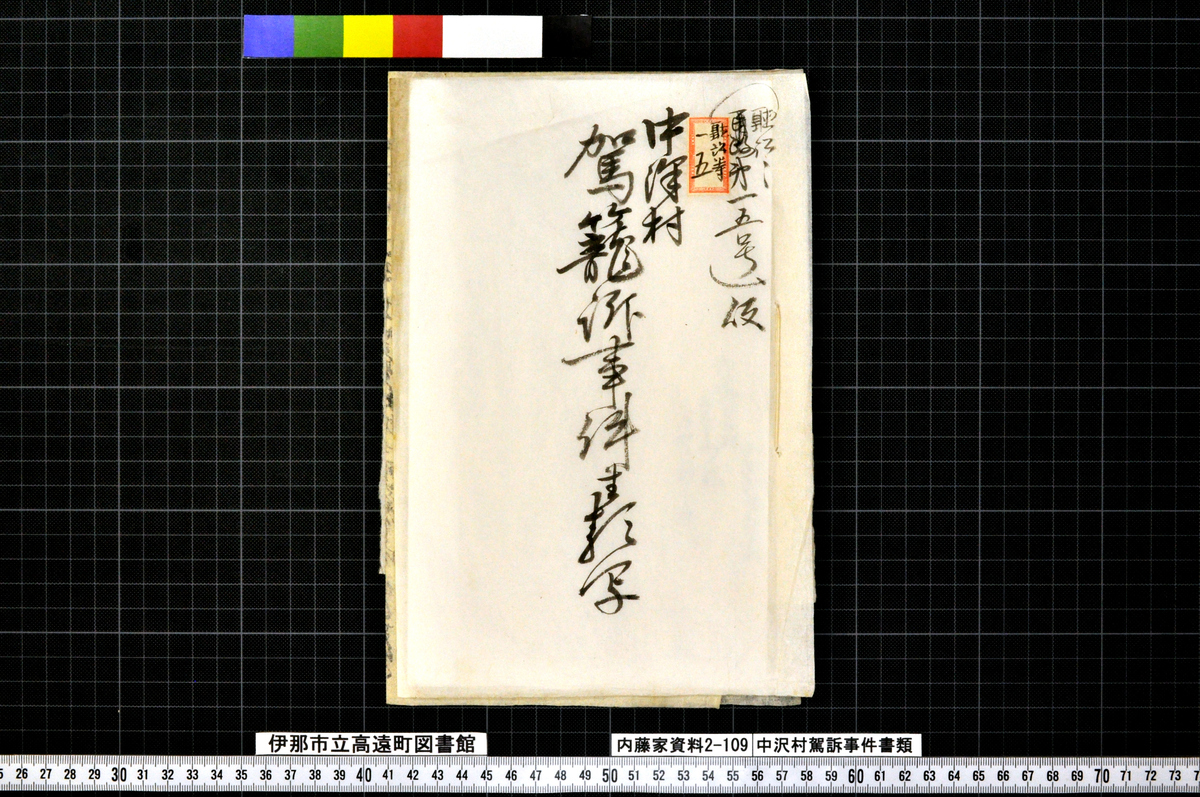 一五号 仮
一 五
中澤村
駕籠訴事件書類写
伊那市立高遠町図書館
内藤家資料2-109 中沢村駕訴事件書類
5 26 27 28 29 30 31 32 33 34 35 36 37 38 39 40 41 42 43 44 45 46 47 48 49 50 51 52 53 54 55 56 57 58 59 60 61 62 63 64 65 66 67 68 69 70 71 72 73 7